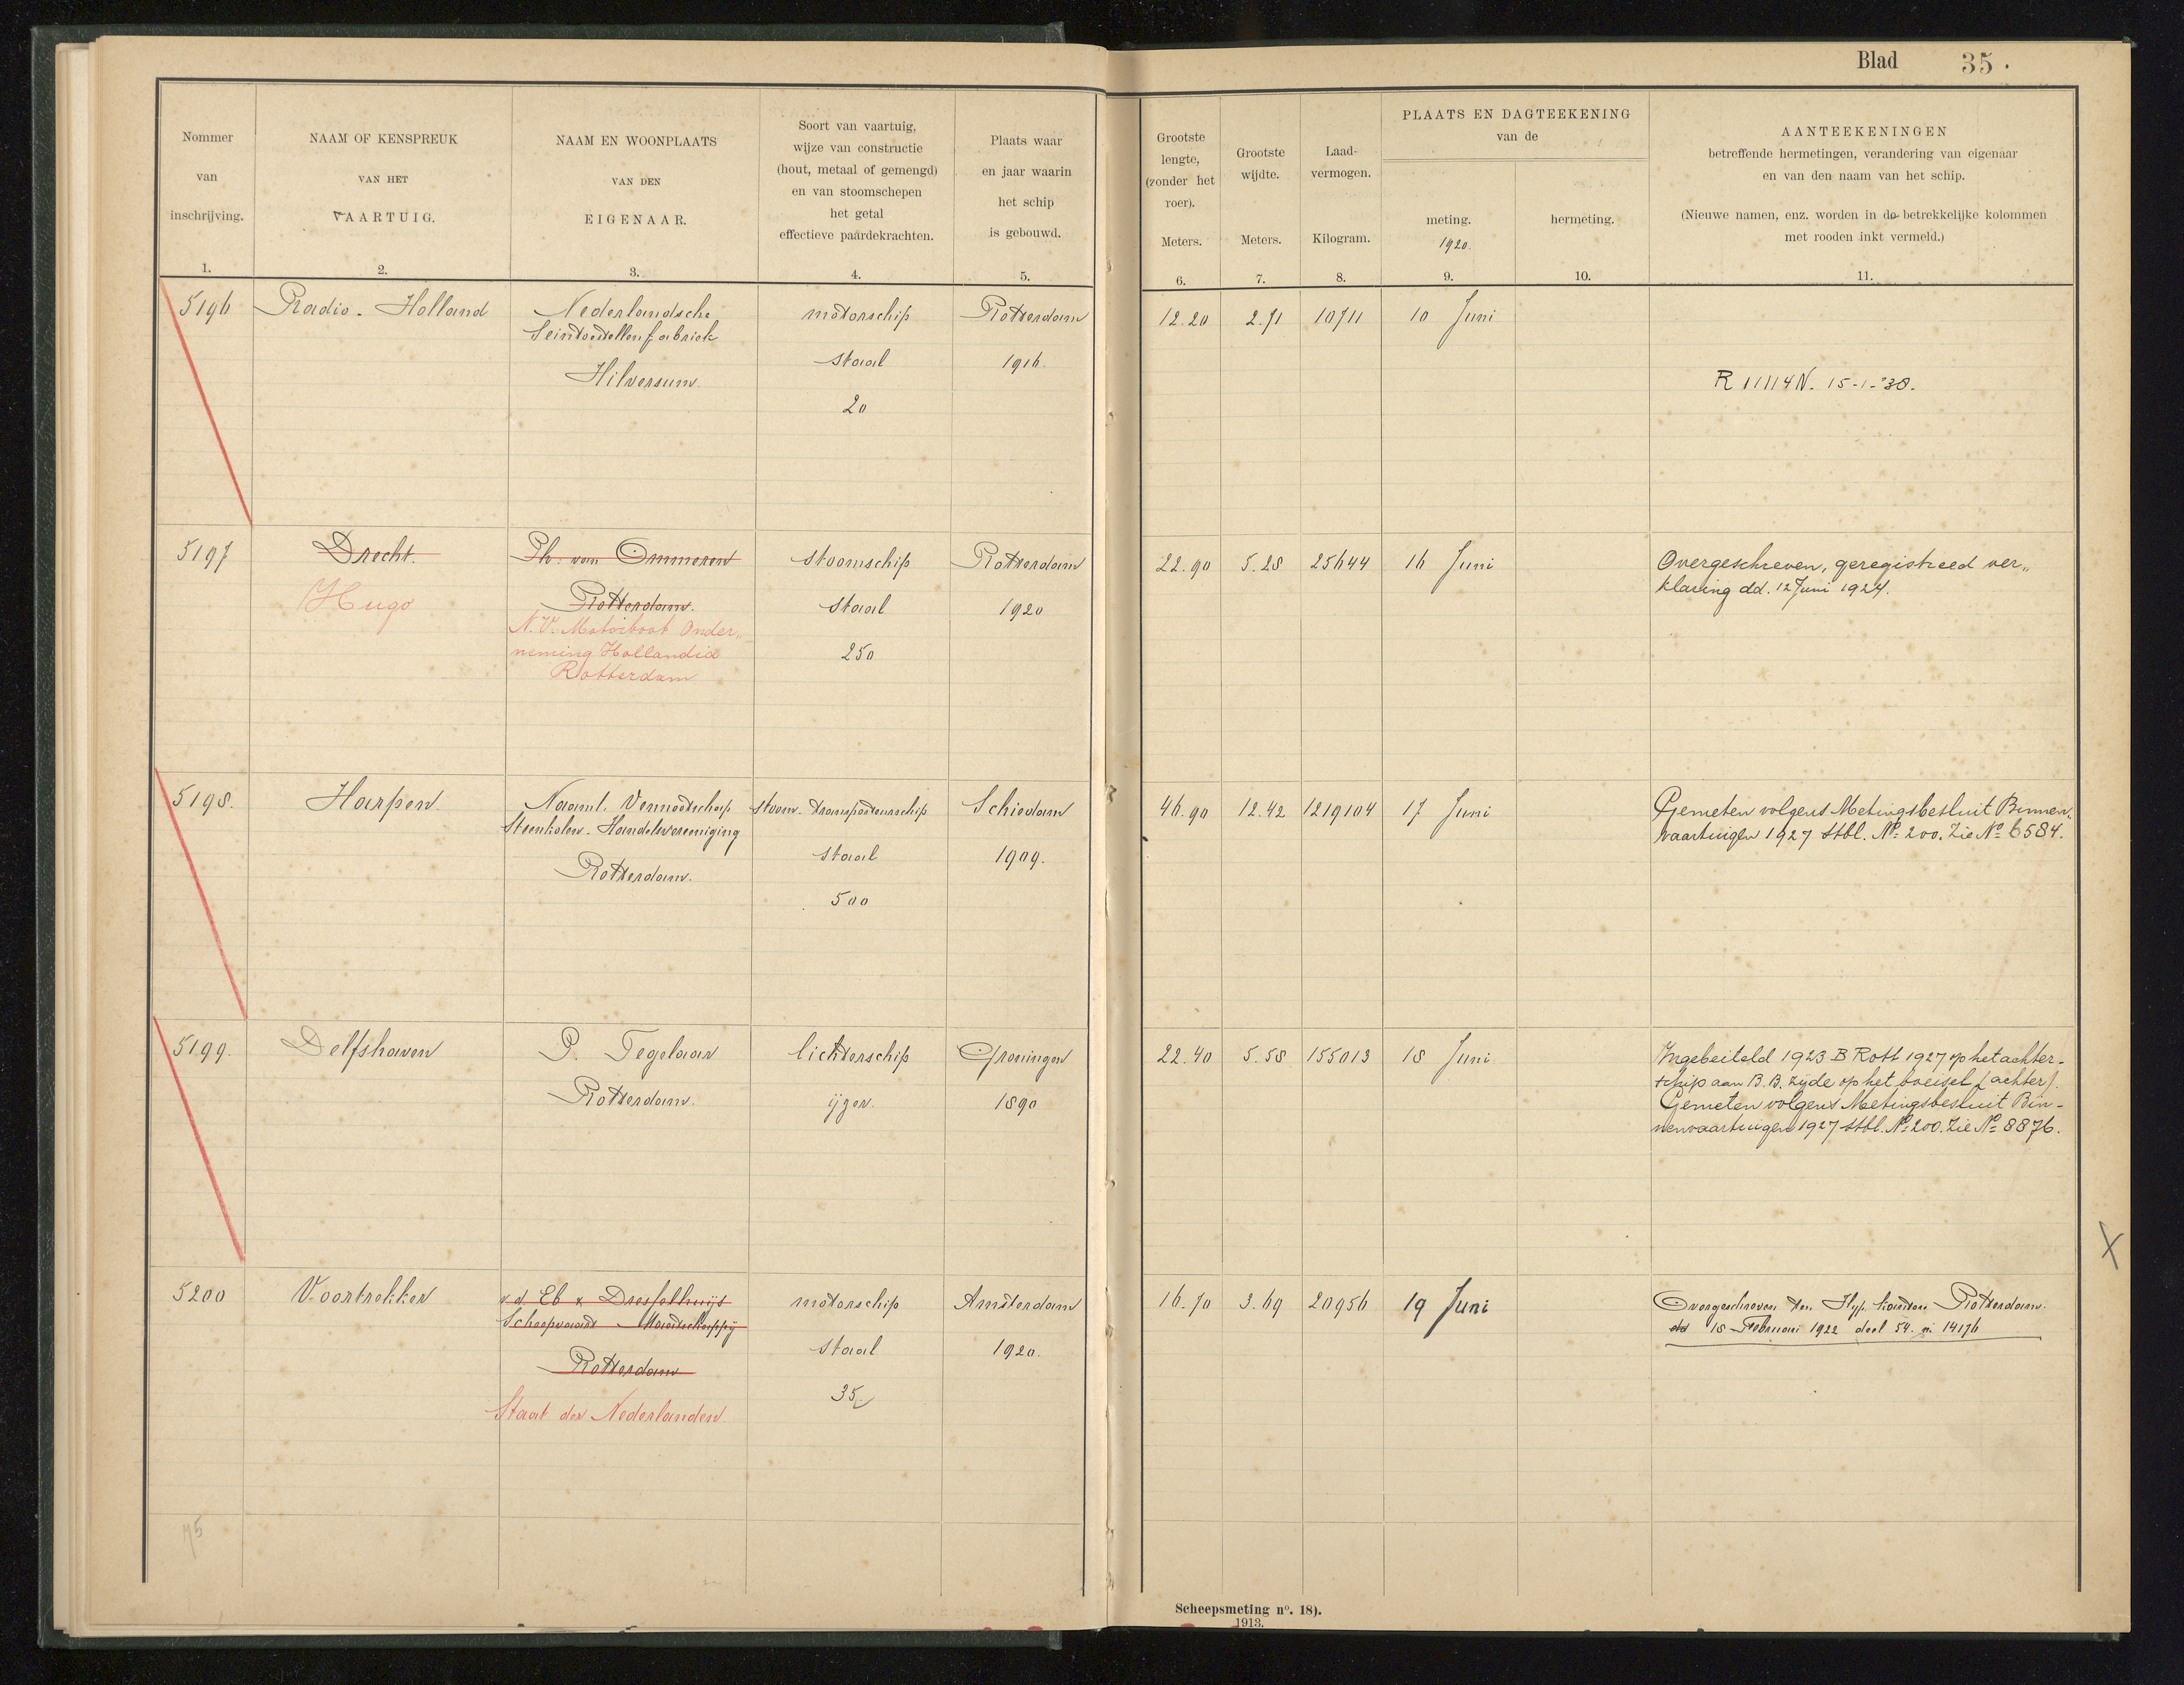 Blad 35.
Nommer
van
inschrijving.
1.
NAAM OF KENSPREUK
VAN HET
VAARTUIG.
2.
NAAM EN WOONPLAATS
VAN DEN
EIGENAAR.
3.
Soort van vaartuig,
wijze van constructie
(hout, metaal of gemengd)
en van stoomschepen
het getal
effectieve paardekrachten.
4.
Plaats waar
en jaar waarin
het schip
is gebouwd.
5.
Grootste
lengte,
(zonder het
roer).
Meters.
6.
Grootste
wijdte.
Meters.
7.
Laad-
vermogen.
Kilogram.
8.
PLAATS EN DAGTEEKENING
van de
meting.
1920.
9.
hermeting.
10.
AANTEEKENINGEN
betreffende hermetingen, verandering van eigenaar
en van den naam van het schip.
(Nieuwe namen, enz. worden in de betrekkelijke kolommen
met rooden inkt vermeld.)
11.
5196
Radio-Holland
Nederlandsche
Seintoestellenfabriek
Hilversum.
motorschip
staal
20
Rotterdam
1916.
12.20
2.71
10711
10 Juni
R 11114N. 15-1-'38.
5197
Drecht.
Hugo
Ph. van Ommeren
Rotterdam.
N.V. Motorboot Onder„
neming Hollandia
Rotterdam
stoomschip
staal
250
Rotterdam
1920
22.90
5.28
25644
16 Juni
Overgeschreven, geregistreed ver„
klaring dd. 12 Juni 1924.
5198.
Harpen
Naaml. Vennootschap
Steenkolen-Handelsvereeniging
Rotterdam.
stoom-transporteurschip
staal
500
Schiedam
1909.
46.90
12.42
1219104
17 Juni
Gemeten volgens Metingsbesluit Binnen-
vaartuigen 1927 Stbl. No 200. Zie No 6584.
5199.
Delfshaven
P. Tegelaar
Rotterdam.
lichterschip
ijzer.
Groningen
1890
22.40
5.58
155013
18 Juni
Ingebeiteld 1923 B Rott 1927 op het achter-
schip aan B.B. zijde op het boeisel (achter).
Gemeten volgens Metingsbesluit Bin-
nenvaartuigen 1927 Stbl. No 200. Zie No 8876.
5200
Voortrekker
v.d. Eb & Dresselhuijs
Scheepvaart Maatschappij
Rotterdam
Staat der Nederlanden
motorschip
staal
35
Amsterdam
1920.
16.70
3.69
20956
19 Juni
Overgeschreven ten Hyp. kantore Rotterdam.
dd 18 Februari 1922 deel 54. n. 14176
X
75
Scheepsmeting no. 18).
1913.